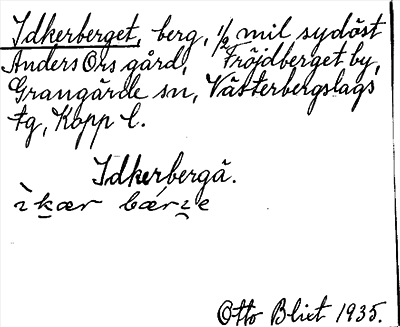 Idkerberget, berg, 1/2 mil sydöst
Anders Ors gård, Fröjdberget by,
Grangärde sn, Västerbergslags
tg, Kopp l.
Idkerbergä.
Otto Blixt 1935.